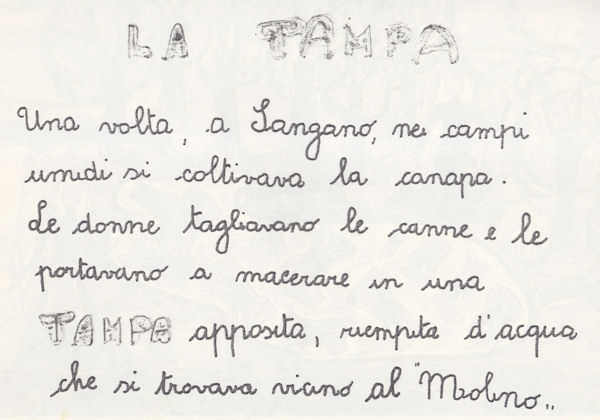 LA TAMPA
Una volta, a Sangano, nei campi
umidi si coltivava la canapa.
Le donne tagliavano le canne e le
portavano a macerare in una
TAMPA apposita, riempita d'acqua
che si trovava vicino al "Molino„